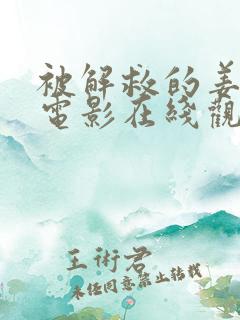 被解救的姜
電影在綫觀
王術君
未经同意禁止转载